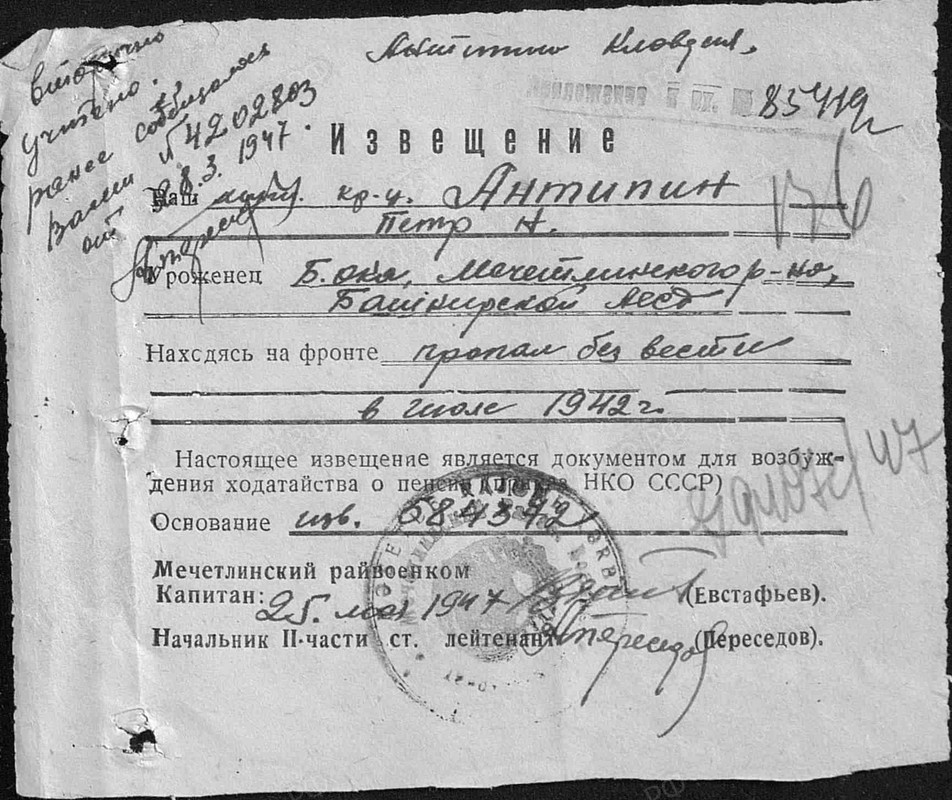 вторично
учтено.
ранее сообщалось
вами №4202803
от 28.3. 1947.
Антипина Клавдия.
85419г
Извещение
Ваш муж. кр-ц. Антипин
Петр Н.
Уроженец Б. ока, Мечетлинского р-на,
Башкирской АССР
Находясь на фронте пропал без вести
в июле 1942 г.
Настоящее извещение является документом для возбуж-
дения ходатайства о пенсии (приказ НКО СССР)
Основание изв. 584372
Мечетлинский райвоенком
Капитан: (Евстафьев).
25. мая 1947
Начальник II-части ст. лейтенант (Переседов).